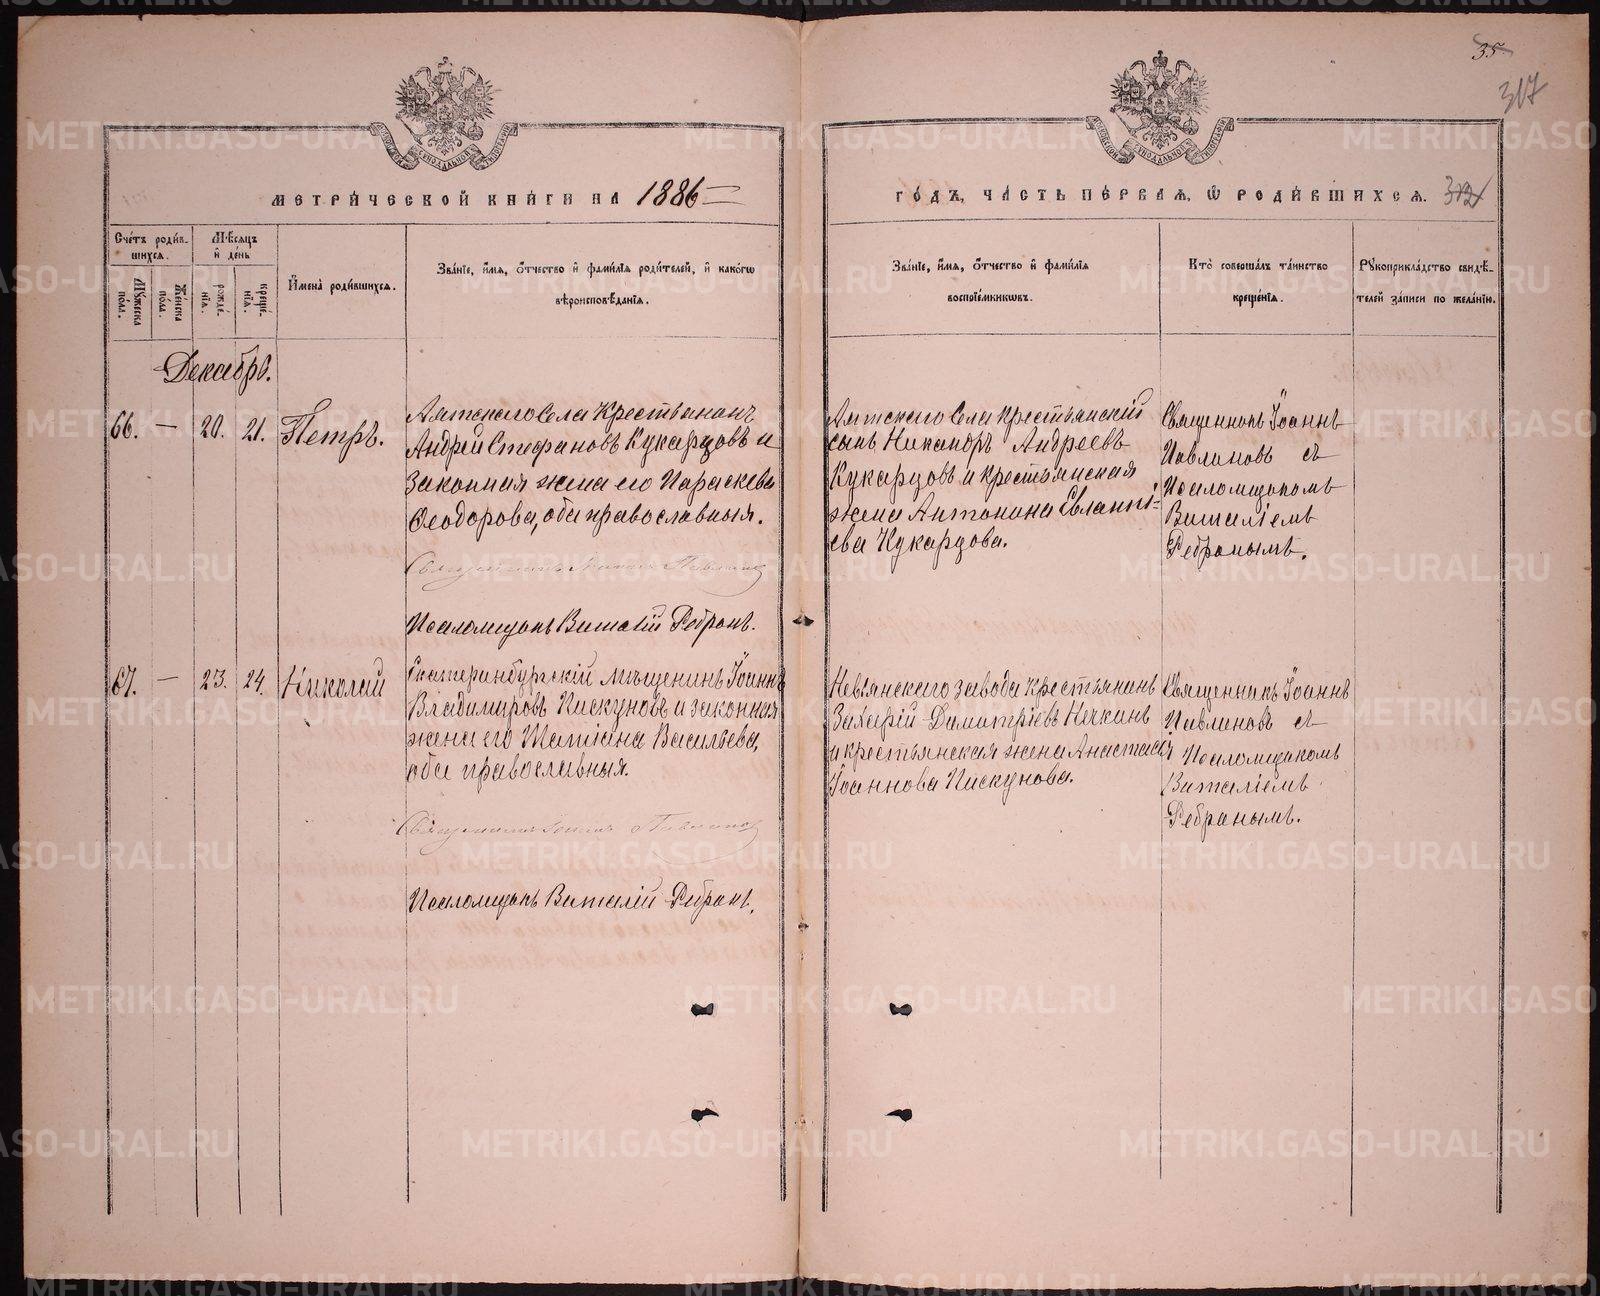 35
317
МЕТРИ́ЧЕСКОЙ КНИ́ГИ НА 1886
ГО́ДЪ, ЧА́СТЬ ПЕ́РВАѦ, Ѡ РОДИ́ВШИХСѦ. 312
Сче́тъ роди́в-
шихсѧ.
Мѣ́сѧцъ
и҆ де́нь
Мꙋ́жеска по́ла.
Же́нска по́ла.
рожде́-
нїѧ.
креще́-
нїѧ.
И҆мена̀ роди́вшихсѧ.
Зва́нїе, и҆́мѧ, ѻ҆́тчество и҆ фами́лїѧ роди́телей, и҆ како́гѡ
вѣроисповѣ́данїѧ.
Зва́нїе, и҆́мѧ, ѻ҆́тчество и҆ фами́лїѧ
воспрїе́мникѡвъ.
Кто̀ соверша́лъ та́инство
креще́нїѧ.
Рꙋкоприкла́дство свидѣ́-
телей за́писи по жела́нїю.
Декабрь.
66. — 20. 21. Петръ.
Аятскаго Села Крестьянинъ
Андрей Стефановъ Кукарцовъ и
законная жена его Параскева
Ѳеодорова, оба православныя.
Священникъ Іоаннъ Павлиновъ
Псаломщикъ Виталій Ребринъ.
Аятскаго Села крестьянскій
сынъ Никаноръ Андреевъ
Кукарцовъ и крестьянская
жена Антонина Евлампі-
ева Кукарцова.
Священникъ Іоаннъ
Павлиновъ съ
Псаломщикомъ
Виталіемъ
Ребринымъ.
67. — 23. 24. Николай
Екатеринбургскій мѣщанинъ Іоаннъ
Владимировъ Пискуновъ и законная
жена его Татіана Васильева,
оба православныя.
Священникъ Іоаннъ Павлиновъ
Псаломщикъ Виталій Ребринъ.
Невьянскаго завода крестьянинъ
Захарій Димитріевъ Нечкинъ
и крестьянская жена Анастасія
Іоаннова Пискунова.
Священникъ Іоаннъ
Павлиновъ съ
Псаломщикомъ
Виталіемъ
Ребринымъ.
METRIKI.GASO-URAL.RU